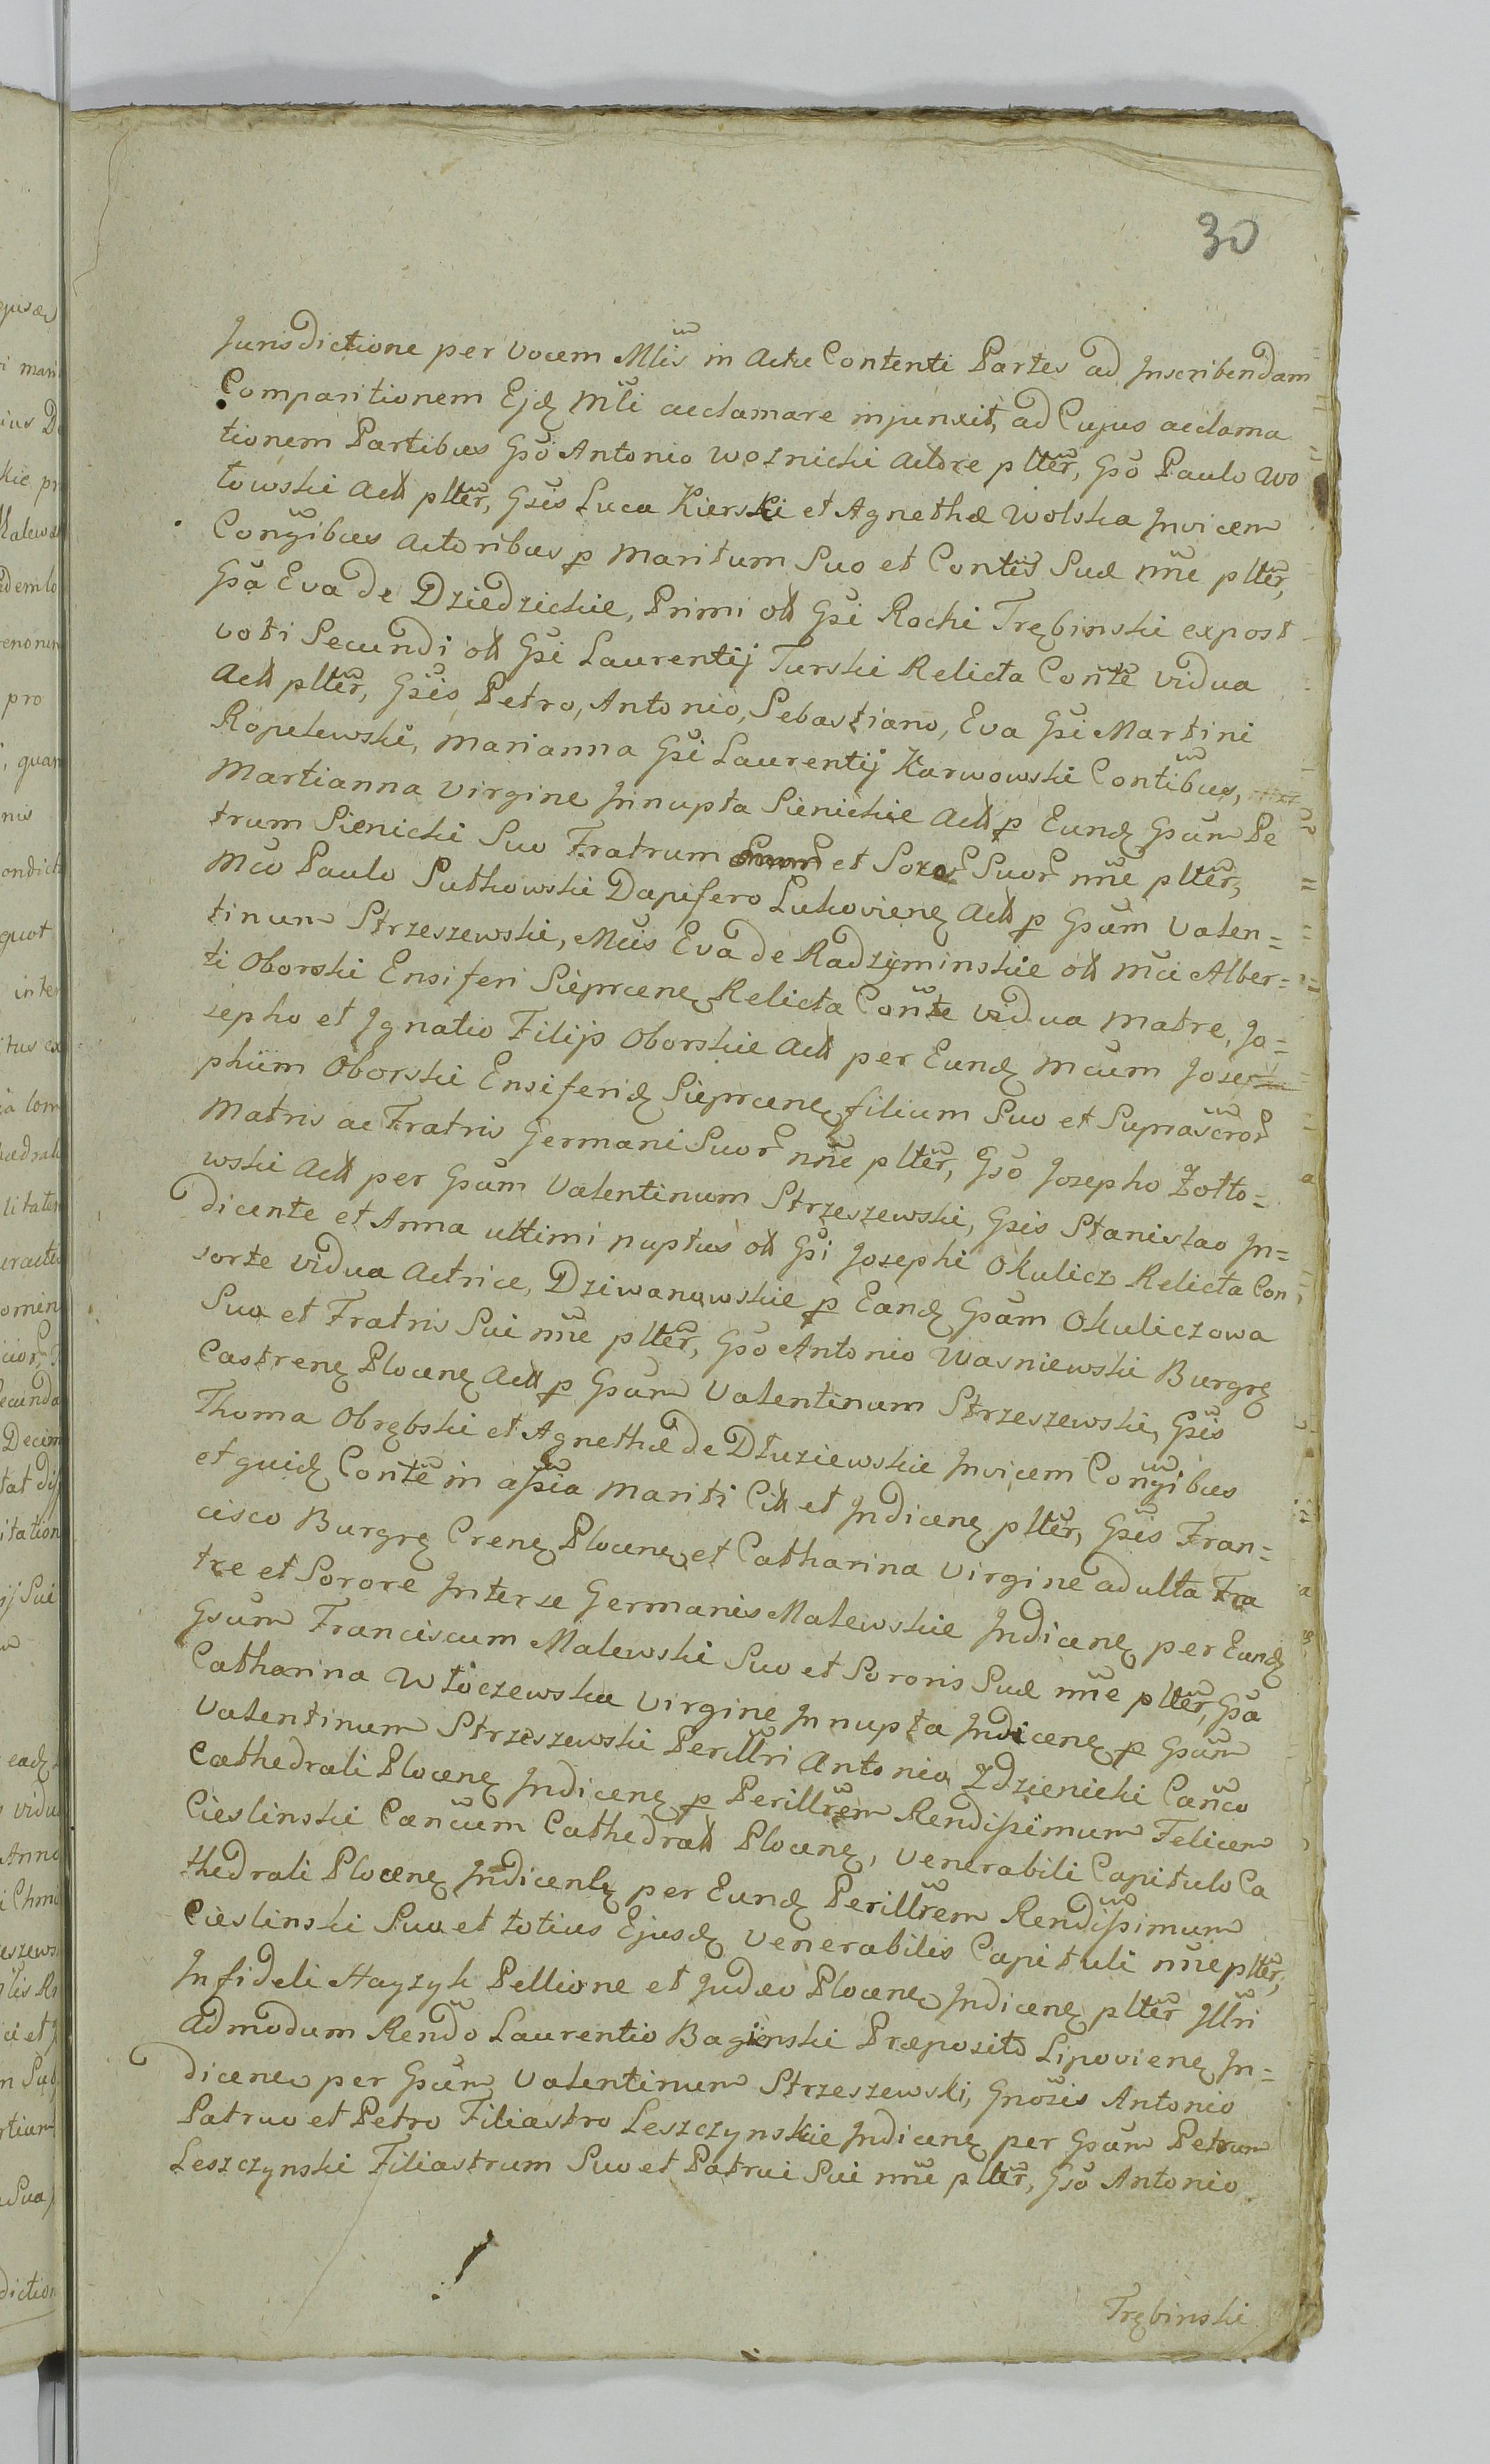 30
Jurisdictione per vocem Mlis in Actu Contenti Partes ad Inscribendam
Comparitionem Ejd Mli acclamare injunxit, ad Cujus acclama
tionem Partibus Gso Antonio Woznicki Actore plter, Gso Paulo Wo
towski Act plter, Gsis Luca Kierski et Agnetha Wolska Invicem
Congibus Actoribus p Maritum Suo et Contis Suæ nne plter,
Gsa Eva de Dziedzickie, Primi ol Gsi Rochi Trębinski expost
voti Secundi ol Gsi Laurentij Turski Relicta Conte vidua
Act plter, Gsis Petro, Antonio, Sebastiano, Eva Gsi Martini
Ropelewski, Marianna Gsi Laurentij Karwowski Contibus,
Martianna Virgine Innupta Sienickie Act p Eund Gsum Pe
trum Sienicki Suo Fratrum et Soror Suor nne plter,
Mco Paulo Sutkowski Dapifero Lukoviene Act p Gsum Valen=
tinum Strzeszewski, Mcis Eva de Radzyminskie ol Mci Alber=
ti Oborski Ensiferi Sieprcene Relicta Conte vidua Matre, Jo=
sepho et Ignatio Filijs Oborskie Act per Eund Mcum Jose
phum Oborski Ensiferid Sieprcene filium Suo et Suprascror
Matris ac Fratris Germani Suor nne plter, Gso Josepho Zolto=
wski Act per Gsum Valentinum Strzeszewski, Gsis Stanislao In=
dicente et Anna ultimi nuptus ol Gsi Josephi Okulicz Relicta Con
sorte vidua Actrice, Dziwanowskie p Eand Gsam Okuliczowa
Suo et Fratris Sui nne plter, Gso Antonio Wasniewski Burgre
Castrene Plocene Act p Gsum Valentinum Strzeszewski, Gsis
Thoma Obrębski et Agnetha de Dłuziewskie Invicem Congibus
et quid Conte in assia Mariti Cit et Indicene plter, Gsis Fran=
cisco Burgre Crene Plocene et Catharina Virgine adulta Fra
tre et Sorore Inter se Germanis Malewskie Indicene per Eund
Gsum Franciscum Malewski Suo et Sororis Suæ nne plter, Gsa
Catharina Włoczewska Virgine Innupta Indicene p Gsum
Valentinum Strzeszewski Perillri Antonio Zdzienicki Canco
Cathedrali Plocene Indicene p Perillrem Rendissimum Felicem
Cieslinski Cancum Cathedral Plocene, Venerabili Capitulo Ca
thedrali Plocene Indicente per Eund Perillrem Rendissimum
Cieslinski Suo et totius Ejusd Venerabilis Capituli nne pltter,
Infideli Hayzyk Pellione et Judæo Plocene Indicene pltter Illri
Admodum Rendo Laurentio Baginski Præposito Lipoviene In=
dicene per Gsum Valentinum Strzeszewski, Gnosis Antonio
Patruo et Petro Filiastro Leszczynskie Indicene per Gsum Petrum
Leszczynski Filiastrum Suo et Patrui Sui nne pltter, Gso Antonio
Trębinski